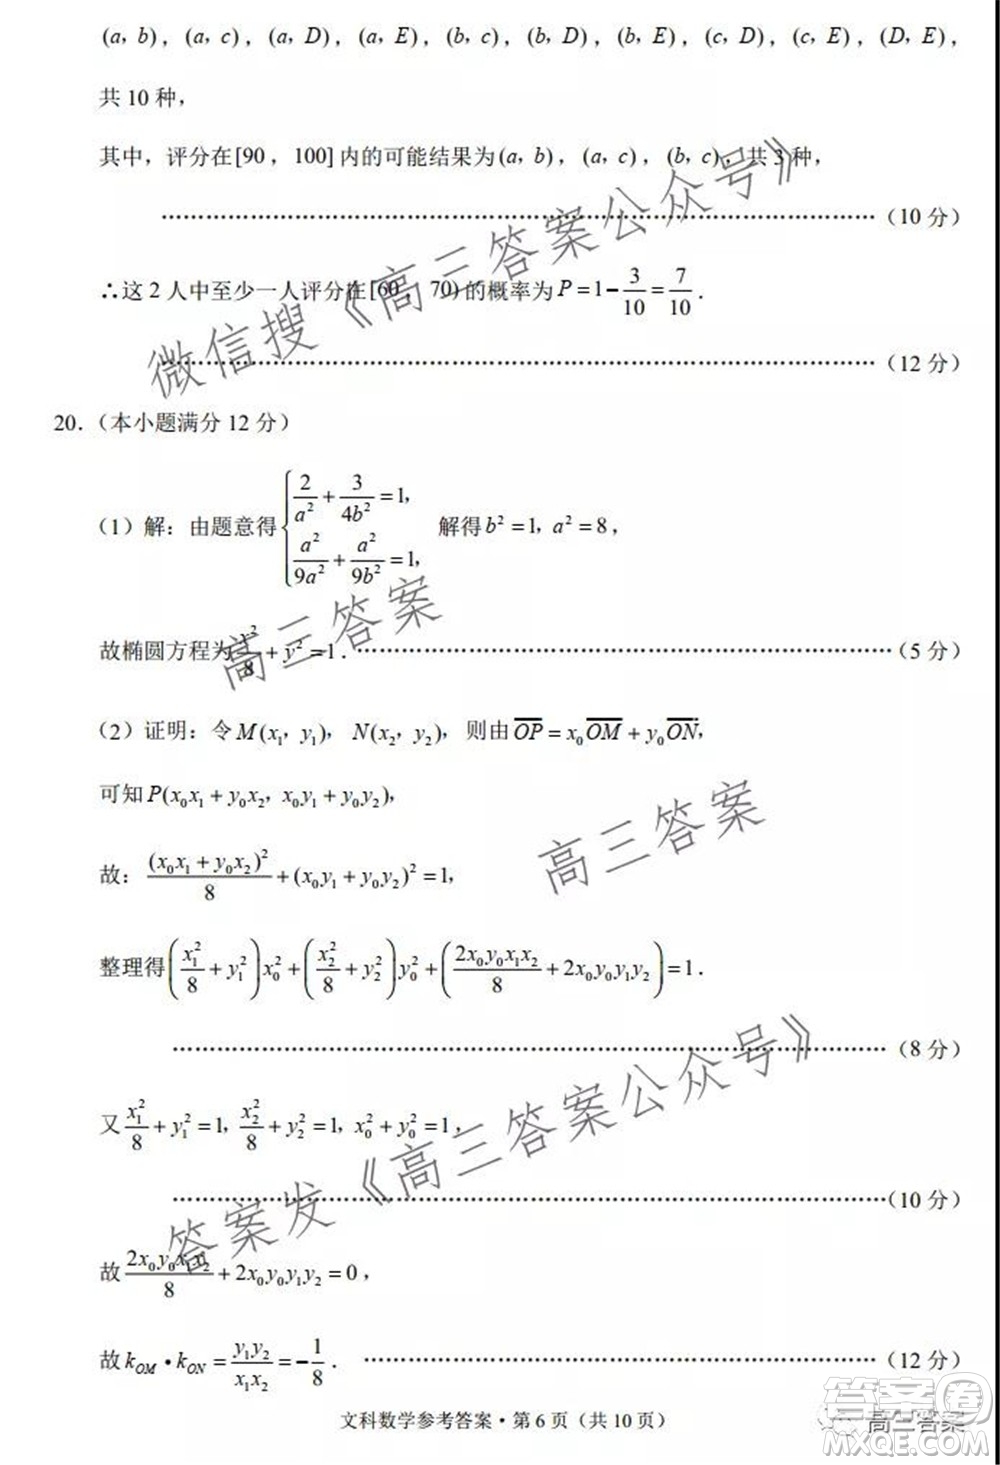 (a, b), (a, c), (a, D), (a, E), (b, c), (b, D), (b, E), (c, D), (c, E), (D, E),
共 10 种,
其中, 评分在 [90, 100] 内的可能结果为 (a, b), (a, c), (b, c), 共 3 种,
……………………………………………………………………………(10 分)
∴这 2 人中至少一人评分在 [60, 70) 的概率为 P = 1 − 3/10 = 7/10 .
……………………………………………………………………………(12 分)
微信搜《高三答案公众号》
20.(本小题满分 12 分)
(1)解:由题意得 { 2/a² + 3/4b² = 1, a²/9a² + a²/9b² = 1, 解得 b² = 1, a² = 8,
故椭圆方程为 x²/8 + y² = 1 . ………………………………………………(5 分)
高三答案
(2)证明:令 M(x₁, y₁), N(x₂, y₂), 则由 OP = x₀OM + y₀ON,
可知 P(x₀x₁ + y₀x₂, x₀y₁ + y₀y₂),
高三答案
故: (x₀x₁ + y₀x₂)²/8 + (x₀y₁ + y₀y₂)² = 1,
整理得 (x₁²/8 + y₁²)x₀² + (x₂²/8 + y₂²)y₀² + (2x₀y₀x₁x₂/8 + 2x₀y₀y₁y₂) = 1 .
……………………………………………………………………………(8 分)
又 x₁²/8 + y₁² = 1, x₂²/8 + y₂² = 1, x₀² + y₀² = 1,
……………………………………………………………………………(10 分)
答案发《高三答案公众号》
故 2x₀y₀x₁x₂/8 + 2x₀y₀y₁y₂ = 0,
故 k_OM • k_ON = y₁y₂/x₁x₂ = −1/8 . ………………………………………………(12 分)
文科数学参考答案・第 6 页(共 10 页)
高三答案
答案圈
MXQE.COM